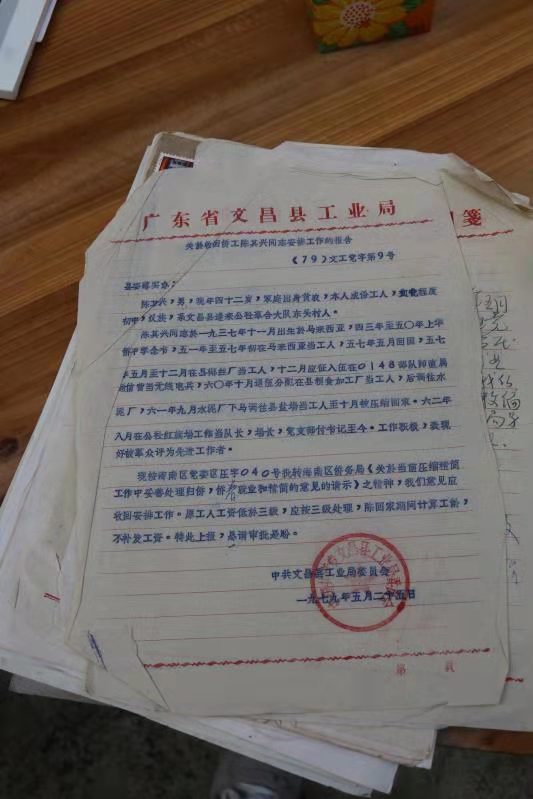 广东省文昌县工业局
关於归国侨工陈其兴同志安排工作的报告
(79)文工党字第9号
县委落实办:
陈其兴,男,现年四十二岁,家庭出身贫农,本人成份工人,文化程度
初中,汉族,系文昌县 公社革合大队东头村人。
陈其兴同志於一九三七年十一月出生於马来西亚,四三年至五〇年上华
侨中学念书,五一年至五七年初在马来西亚当工人,五七年五月回国,五七
年五月至十二月在县 厂当工人,十二月应征入伍在0148部队 直属
通信营当无线电兵,六〇年十月退伍分配在县粮食加工厂当工人,后调往水
泥厂,六一年九月水泥厂下马调往县盐场当工人至十月被压缩回家。六二年
八月在公社红旗场工作当队长,场长,党支部付书记至今。工作积极,表现
好被群众评为先进工作者。
现按海南区党委区压字040号批转海南区侨务局《关於当前压缩精简
工作中妥善处理归侨,侨眷就业和精简的意见的请示》之精神,我们意见应
收回安排工作。原工人工资低於三级,应按三级处理,陈回家期间计算工龄,
不补发工资。特此上报,恳请审批是盼。
中共文昌县工业局委员会
一九七九年五月二十五日
第 页
笺